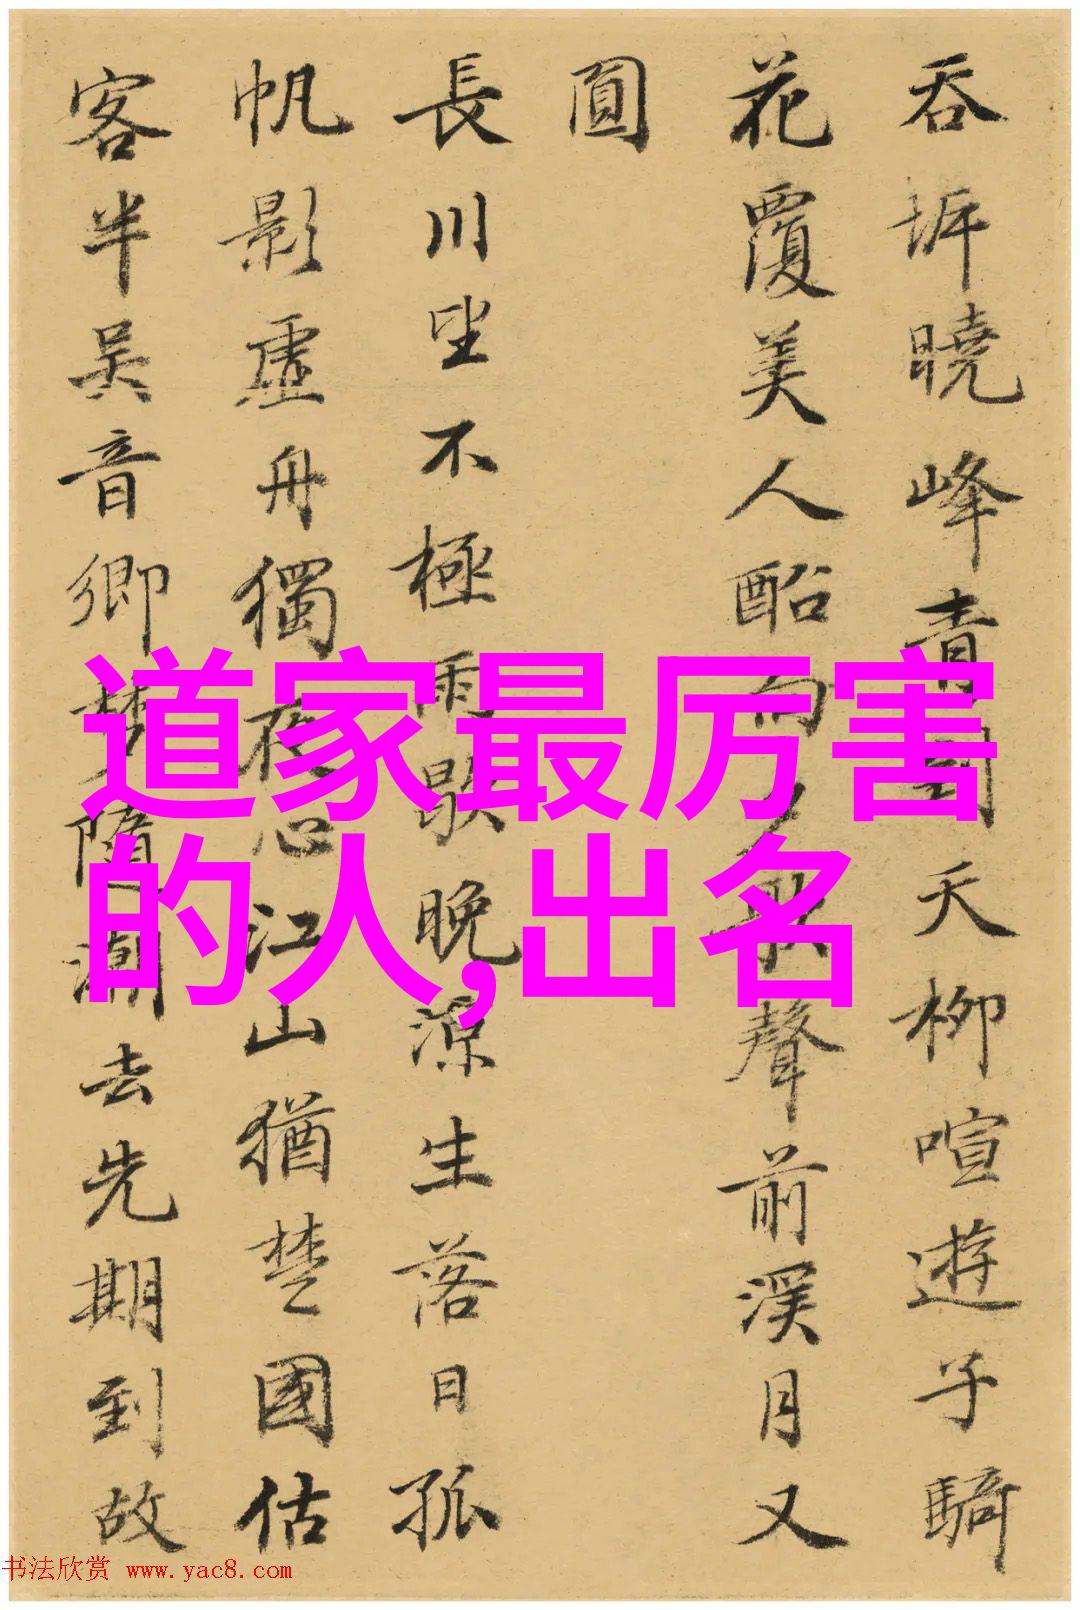 吞坼曉峰青到天柳喧遊子騎
花覆美人酩向夕歌聲前溪月又
圓
長川坐不極雨歇晚涼生落日孤
帆影虛舟獨夜心江山猶楚國估
客半吴音鄉梦隨潮去先期到故
道家最厉害
的人,出名
书法欣赏 www.yac8.com